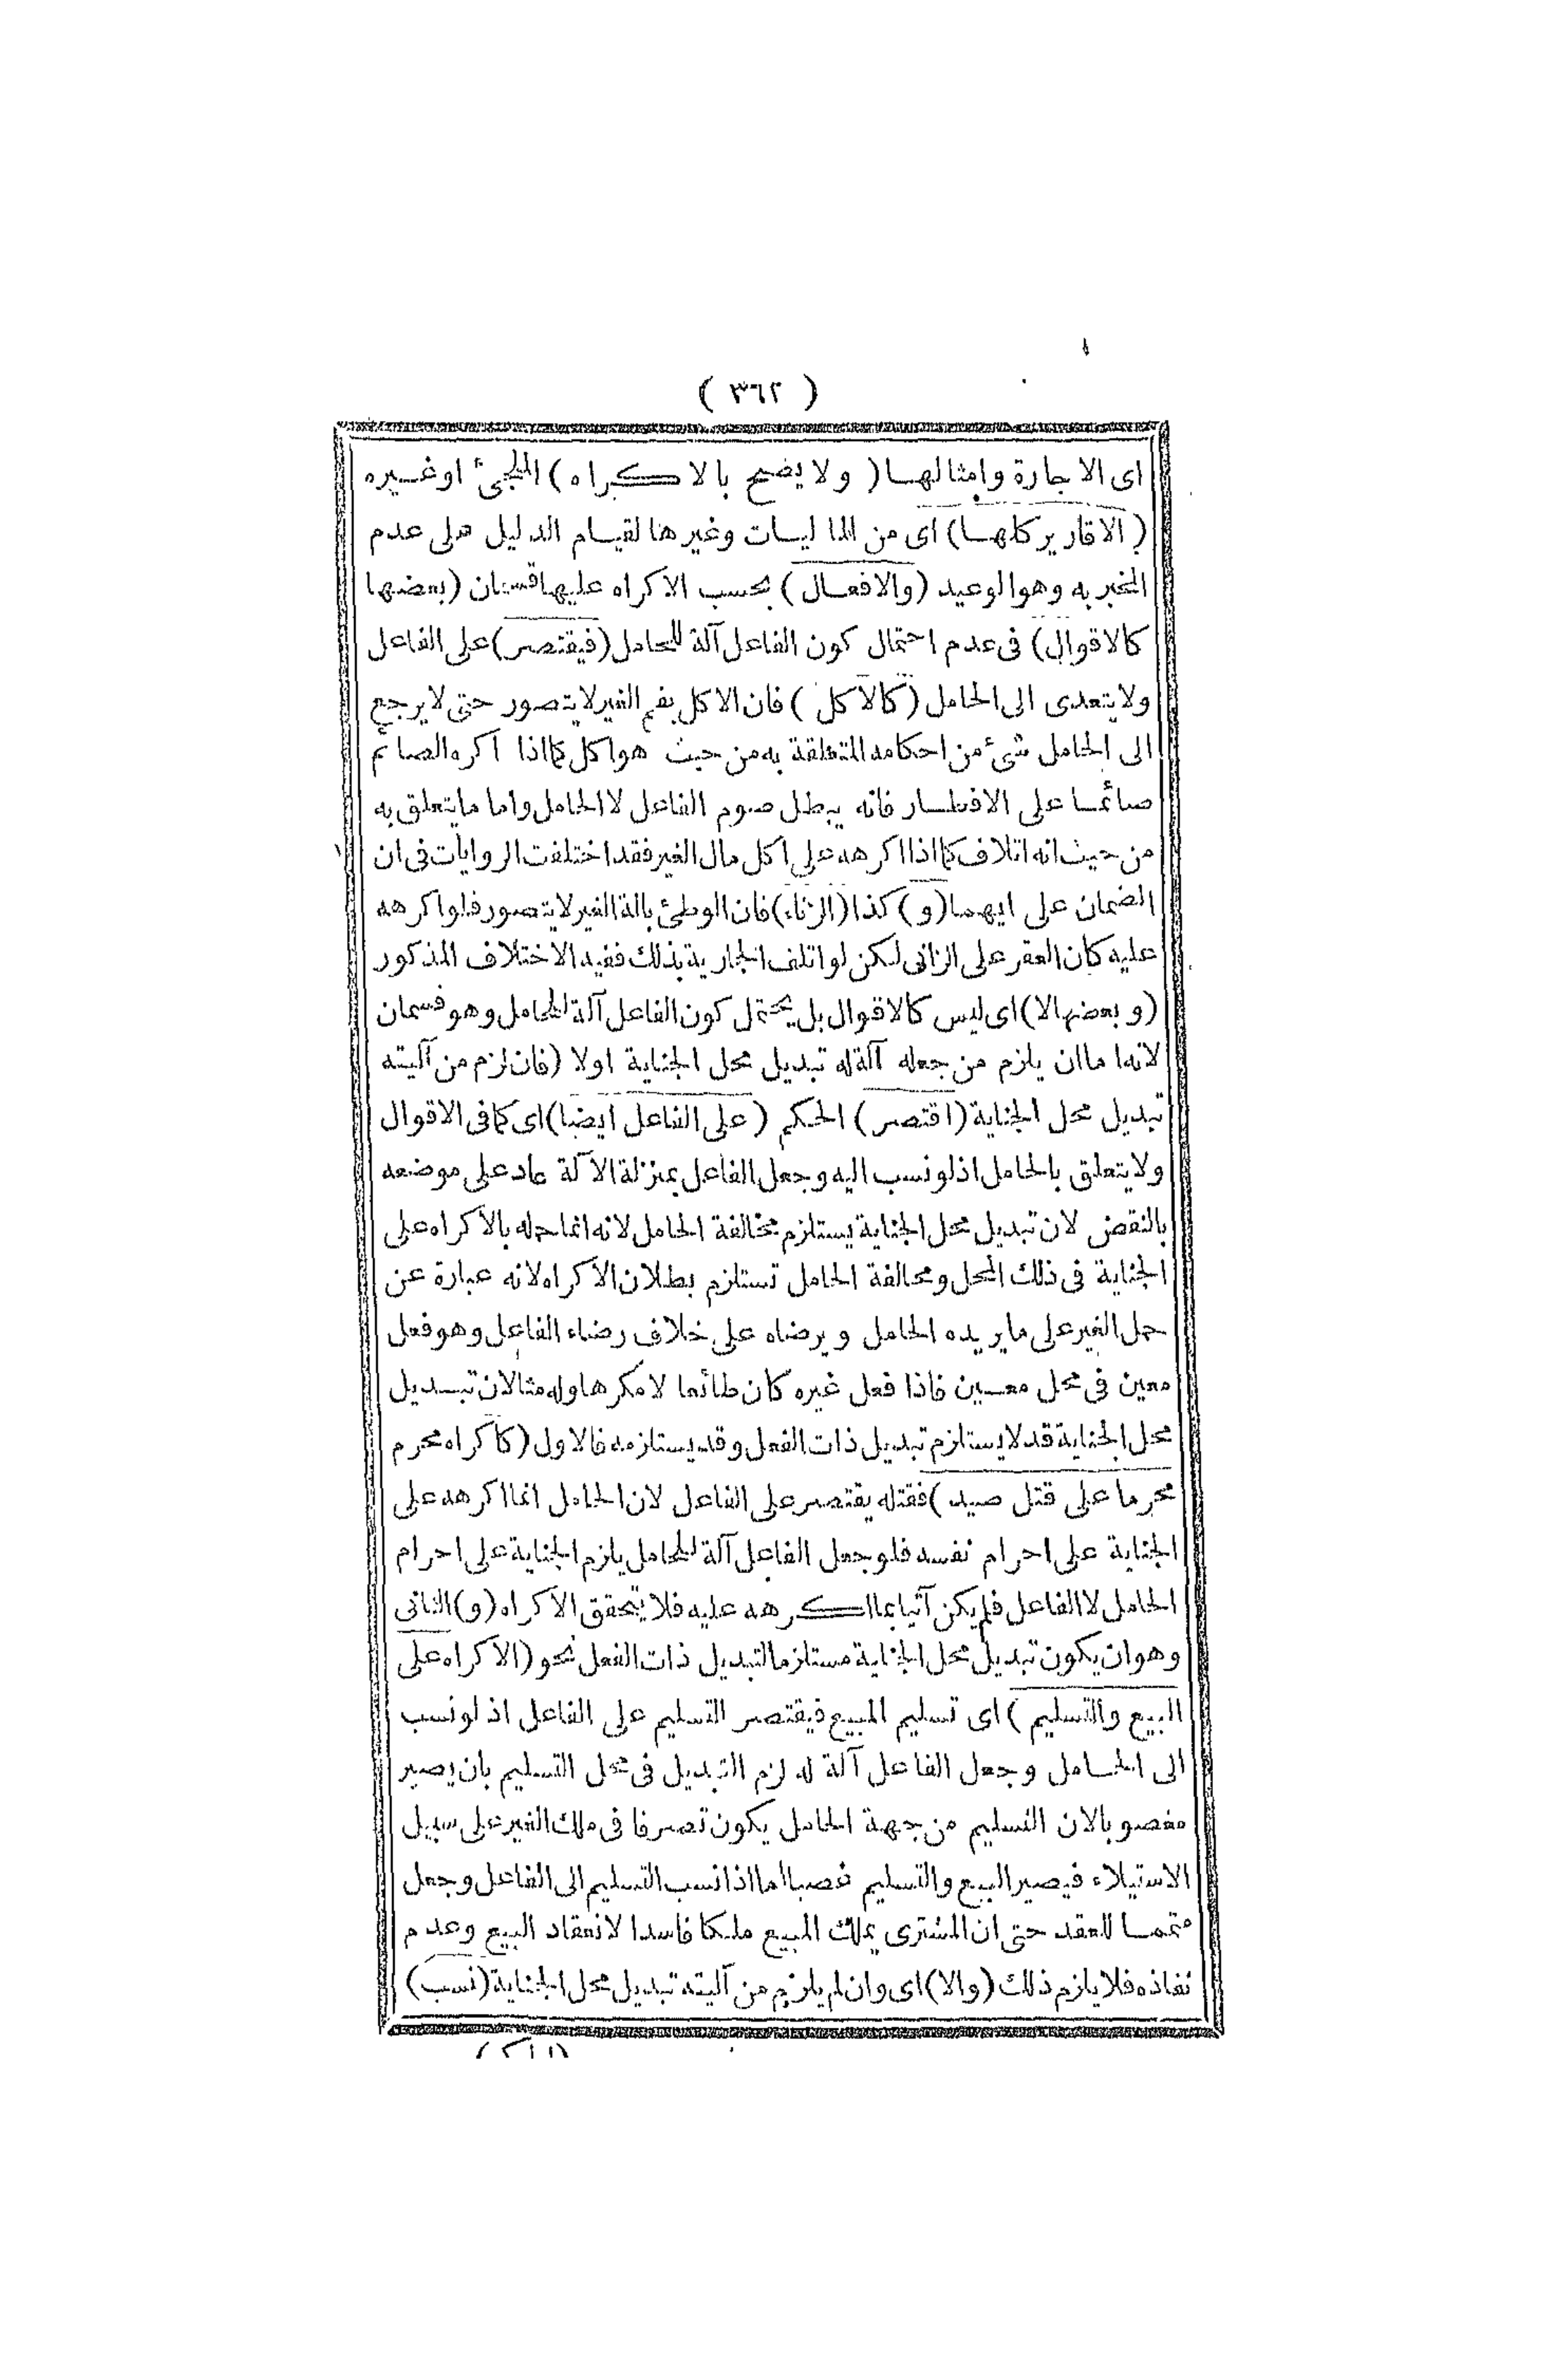 ( ٣٦٢ )
اى الاجارة وامثالها ( ولا يصح بالاكراه ) الملجئ او غيره
( الاقارير كلها ) اى من الماليات وغيرها لقيام الدليل على عدم
المخبر به وهو الوعيد ( والافعال ) بحسب الاكراه عليها قسمان ( بعضها
كالاقوال ) فى عدم احتمال كون الفاعل آلة للحامل ( فيقتصر ) على الفاعل
ولا يتعدى الى الحامل ( كالاكل ) فان الاكل بفم الغير لا يتصور حتى لا يرجع
الى الحامل شئ من احكامه المتعلقة به من حيث هو اكل كما اذا اكره الصائم
صائما على الافطار فانه يبطل صوم الفاعل لا الحامل واما ما يتعلق به
من حيث انه اتلاف كما اذا اكرهه على اكل مال الغير فقد اختلفت الروايات فى ان
الضمان على ايهما ( و ) كذا ( الزناء ) فان الوطئ بالة الغير لا يتصور فلو اكرهه
عليه كان العقر على الزانى لكن لو اتلف الجارية بذلك ففيه الاختلاف المذكور
( وبعضها لا ) اى ليس كالاقوال بل يحتمل كون الفاعل آلة للحامل وهو قسمان
لانه اما ان يلزم من جعله آلة له تبديل محل الجناية اولا ( فان لزم من آليته
تبديل محل الجناية ( اقتصر ) الحكم ( على الفاعل ايضا ) اى كما فى الاقوال
ولا يتعلق بالحامل اذ لو نسب اليه وجعل الفاعل بمنزلة الآلة عاد على موضعه
بالنقض لان تبديل محل الجناية يستلزم مخالفة الحامل لانه انما حمله بالاكراه على
الجناية فى ذلك المحل ومخالفة الحامل تستلزم بطلان الاكراه لانه عبارة عن
حمل الغير على ما يريده الحامل ويرضاه على خلاف رضاء الفاعل وهو فعل
معين فى محل معين فاذا فعل غيره كان طائعا لا مكرها وله مثالان تبديل
محل الجناية قد لا يستلزم تبديل ذات الفعل وقد يستلزمه فالاول ( كاكراه محرم
محرما على قتل صيد ) فقتله يقتصر على الفاعل لان الحامل انما اكرهه على
الجناية على احرام نفسه فلو جعل الفاعل آلة للحامل يلزم الجناية على احرام
الحامل لا الفاعل فلم يكن آتيا بما اكرهه عليه فلا يتحقق الاكراه ( و ) الثانى
وهو ان يكون تبديل محل الجناية مستلزما لتبديل ذات الفعل نحو ( الاكراه على
البيع والتسليم ) اى تسليم المبيع فيقتصر التسليم على الفاعل اذ لو نسب
الى الحامل وجعل الفاعل آلة له لزم التبديل فى محل التسليم بان يصير
مغصوبا لان التسليم من جهة الحامل يكون تصرفا فى ملك الغير على سبيل
الاستيلاء فيصير البيع والتسليم غصبا اما اذا نسب التسليم الى الفاعل وجعل
متمما للعقد حتى ان المشترى يملك المبيع ملكا فاسدا لانعقاد البيع وعدم
نفاذه فلا يلزم ذلك ( والا ) اى وان لم يلزم من آليته تبديل محل الجناية ( نسب )